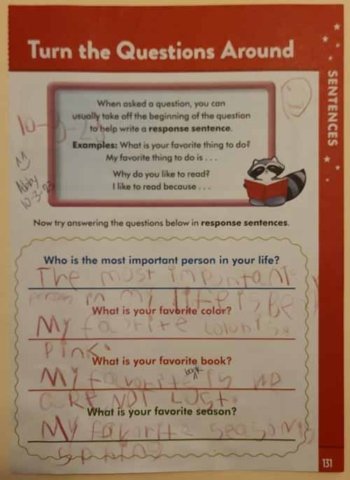 Turn the Questions Around
SENTENCES
When asked a question, you can
usually take off the beginning of the question
to help write a response sentence.
Examples: What is your favorite thing to do?
My favorite thing to do is . . .
Why do you like to read?
I like to read because . . .
Abby
10-3-23
Now try answering the questions below in response sentences.
Who is the most important person in your life?
The most important
person in my life is
What is your favorite color?
My favorite
Pink.
What is your favorite book?
book
My favorite is we
are not Lost.
What is your favorite season?
My favorite season is
spring
131